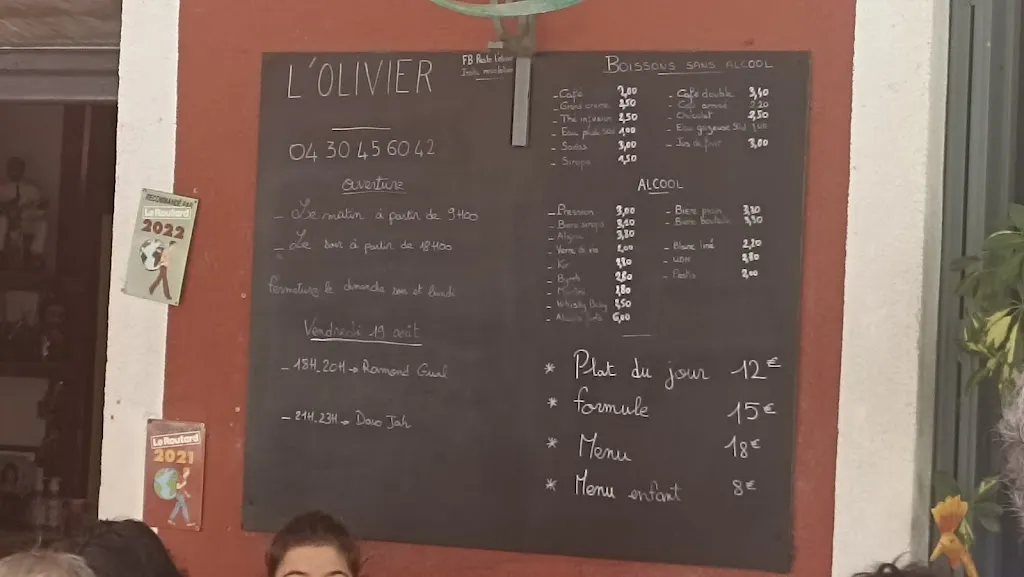 L'OLIVIER
FB Resto l'olivier
04 30 45 60 42
Ouverture
- Le matin à partir de 9H00
- Le soir à partir de 18H00
Fermeture le dimanche soir et lundi
Vendredi 19 août
- 18H_20H → Ramond Gual
- 21H_23H → Davo Jah
BOISSONS SANS ALCOOL
- Café 2,00
- Grand crème 2,50
- Thé infusion 2,50
- Eau plate 50cl 1,00
- Sodas 3,00
- Sirops 1,50
- Café double 3,40
- Chocolat 2,50
- Eau gazeuse 50cl 1,00
- Jus de fruit 3,00
ALCOOL
- Pression 3,00
- Bière sirop 3,10
- Verre de vin 2,00
- Kir
- Byrrh
- Whisky Baby 2,50
- Alcools forts 6,00
- Bière pain
- Bière bouteille
- Blanc limé 2,20
- Pastis 2,00
* Plat du jour 12€
* Formule 15€
* Menu 18€
* Menu enfant 8€
RECOMMANDÉ PAR
Le Routard
2022
Le Routard
2021